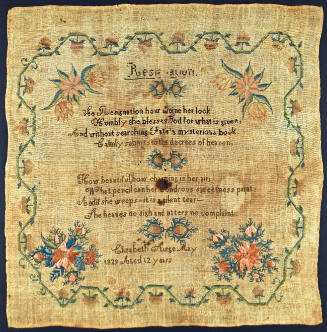 See Resignation how
her look
Humbly she blesses God for what is given,
And without searching Fate's mysterious book
Calmly submits to the decrees of heaven.
How beautiful, how charming is her air;
pencil can her wondrous sweetness paint
And if she weeps it is a silent tear
She heaves no sigh and utters no complaint.
Elizabeth May
1829 Aged 12 years